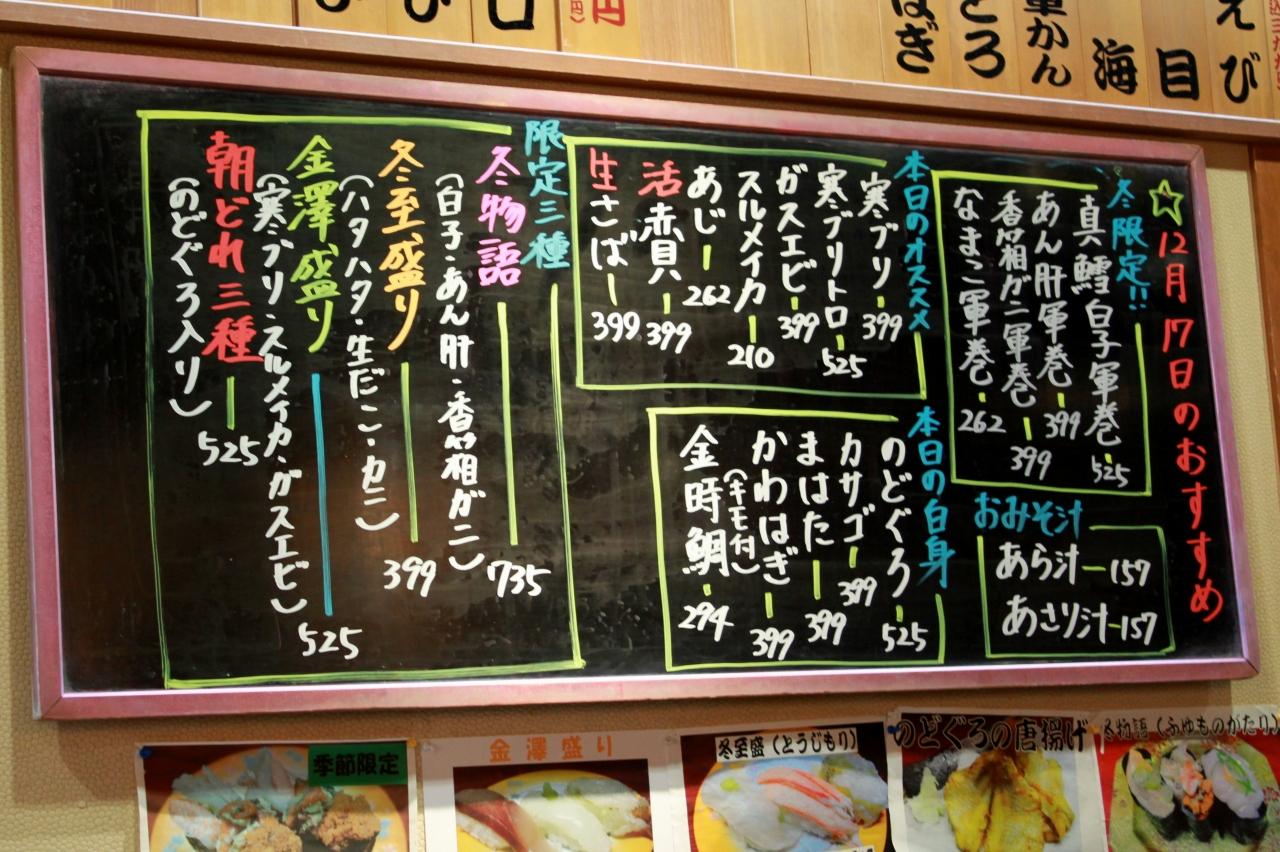 ☆12月17日のおすすめ
冬限定!!
真鱈白子軍巻 525
あん肝軍巻 399
香箱ガニ軍巻 399
なまこ軍巻 262
おみそ汁
あら汁 157
あさり汁 157
本日のオススメ
寒ブリ 399
寒ブリトロ 525
ガスエビ 399
スルメイカ 210
あじ 262
活赤貝 399
生さば 399
本日の白身
のどぐろ 525
カサゴ 399
まはた 399
かわはぎ 399
(キモ付)
金時鯛 294
限定三種
冬物語 735
(白子・あん肝・香箱ガニ)
冬至盛り 399
(ハタハタ・生だこ・カニ)
金澤盛り 525
(寒ブリ・スルメイカ・ガスエビ)
朝どれ三種 525
(のどぐろ入り)
季節限定
金澤盛り
冬至盛(とうじもり)
のどぐろの唐揚げ
冬物語(ふゆものがたり)